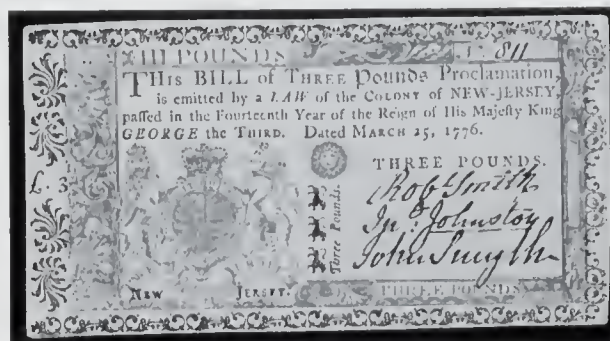 III POUNDS 811
THis BILL of THREE Pounds Proclamation,
is emitted by a LAW of the COLONY of NEW-JERSEY,
passed in the Fourteenth Year of the Reign of His Majesty King
GEORGE the THIRD. Dated MARCH 25, 1776.
THREE POUNDS.
Robt Smith
Jno. Johnston
John Smyth
Three Pounds.
NEW JERSEY.
THREE POUNDS